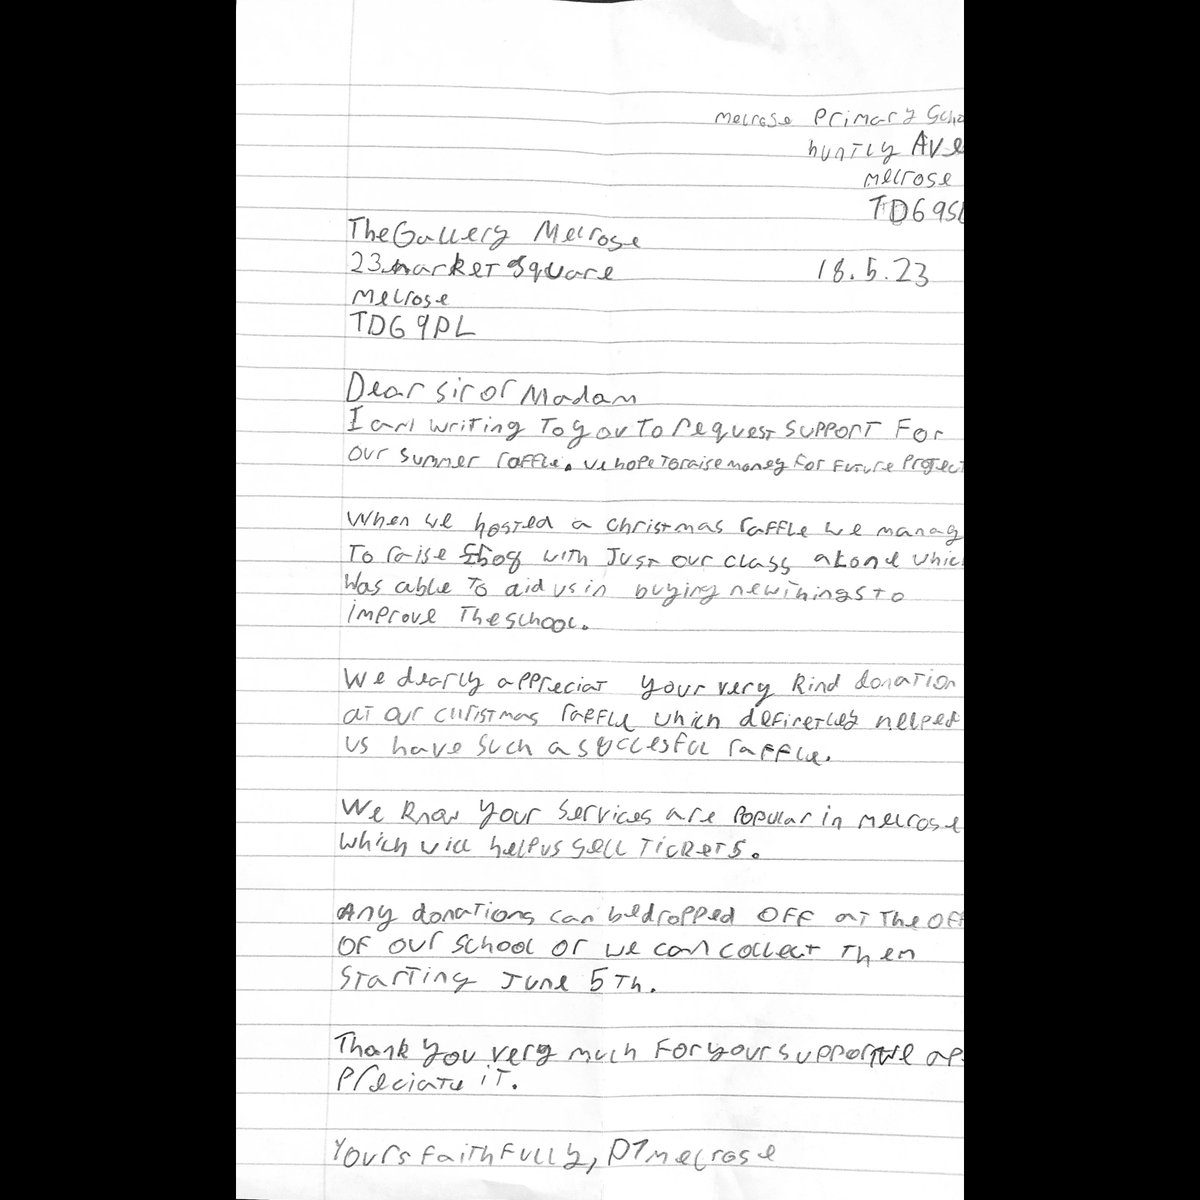 Melrose Primary Scho
huntly Ave
melrose
TD6 9S
The Gallery Melrose
23 market Square
18.5.23
melrose
TD6 9PL
Dear Sir or Madam
I am writing to you to request support for
our summer raffle. we hope to raise money for future project
When we hosted a christmas raffle we manag
to raise with just our class alone whic
was able to aid us in buying new things to
improve the school.
We dearly appreciat your very kind donation
at our christmas raffle which definetley helped
us have such a succesful raffle.
We know your services are popular in melrose
which will help us sell tickets.
Any donations can be dropped off at the off
of our school or we can collect them
starting June 5th.
Thank you very much for your support we ap
preciate it.
Yours faithfully, P7 melrose